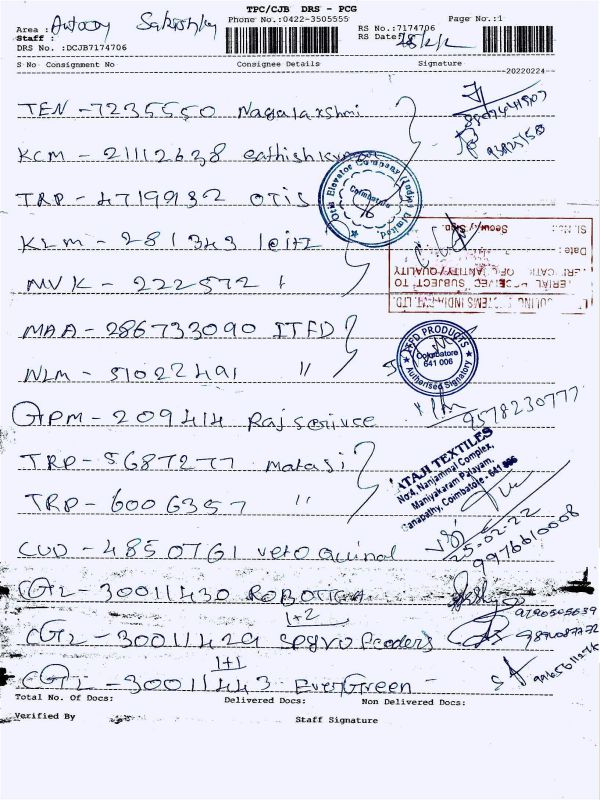 TPC/CJB DRS - PCG
Area :
Phone No.:0422-3505555
RS No.:7174706
Page No.:1
Staff :
RS Date
DRS No. :DCJB7174706
S No Consignment No Consignee Details Signature
20220224
TEN-7235550 Nagalaxshmi
KCM - 21112638
TRP - 4719932 OTIS
Otis Elevator Company (India) Limited
Coimbatore
KLM - 281343 leitz
MVK - 222572 "
MAA - 286733090 ITFD
NLM - 51022491 "
ITFD PRODUCTS
Coimbatore
641 006
Authorised Signatory
GPM - 209414 Raj serivce
9578230777
TRP - 5687277 matasi
ATAJI TEXTILES
No:4, Nanjammal Complex,
Maniyakaram Palayam,
Ganapathy, Coimbatore - 641 006
TRP - 6006357 "
25-02-22
9976610008
CUD - 4850761 veto
CGZ - 30011430 ROBOTICA
1+2
CGZ - 30011429 spyro feeders
1+1
CGZ - 30011443 EverGreen -
Total No. Of Docs: Delivered Docs: Non Delivered Docs:
Verified By Staff Signature